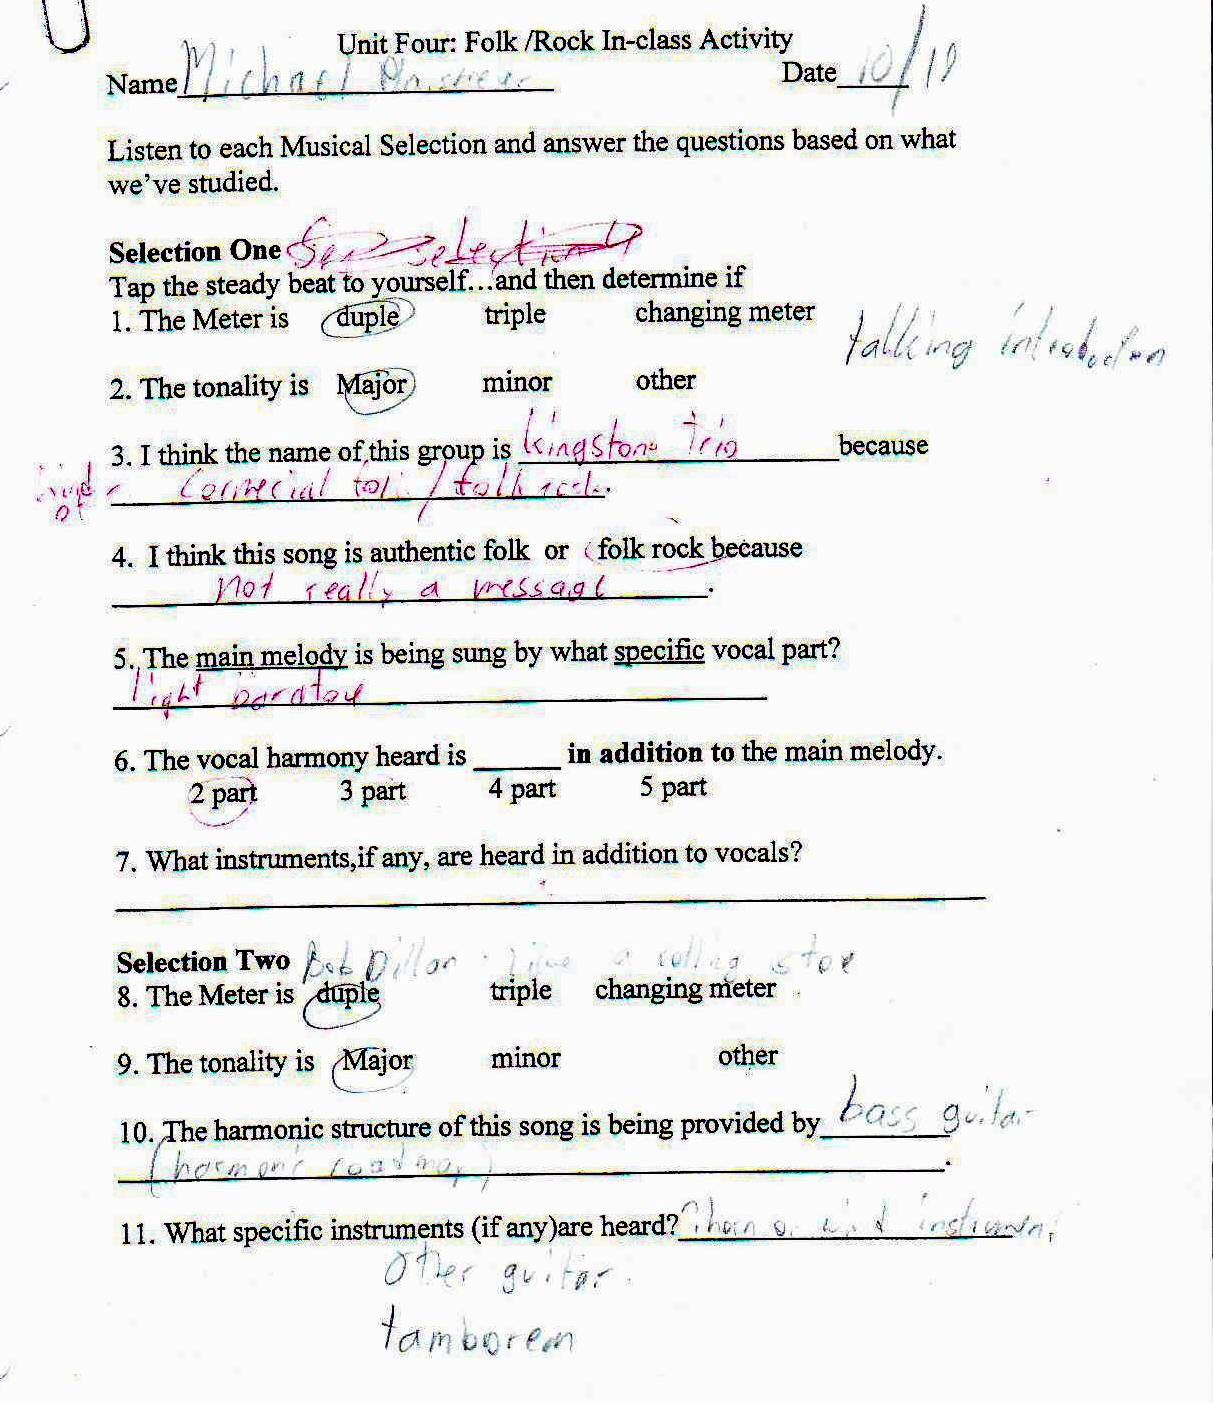 Unit Four: Folk /Rock In-class Activity
Name Michael Date 10/19
Listen to each Musical Selection and answer the questions based on what
we've studied.
Selection One
Tap the steady beat to yourself...and then determine if
1. The Meter is duple triple changing meter
talking introduction
2. The tonality is Major minor other
3. I think the name of this group is Kingstone Trio because
of Comercial fol / folk rock.
4. I think this song is authentic folk or folk rock because
not really a message.
5. The main melody is being sung by what specific vocal part?
light baratone
6. The vocal harmony heard is ______ in addition to the main melody.
2 part 3 part 4 part 5 part
7. What instruments,if any, are heard in addition to vocals?
Selection Two Bob Dillon Like a rolling stoe
8. The Meter is duple triple changing meter
9. The tonality is Major minor other
10. The harmonic structure of this song is being provided by bass guitar
(harmonic roadmap)
11. What specific instruments (if any)are heard?
other guitar
tamborem